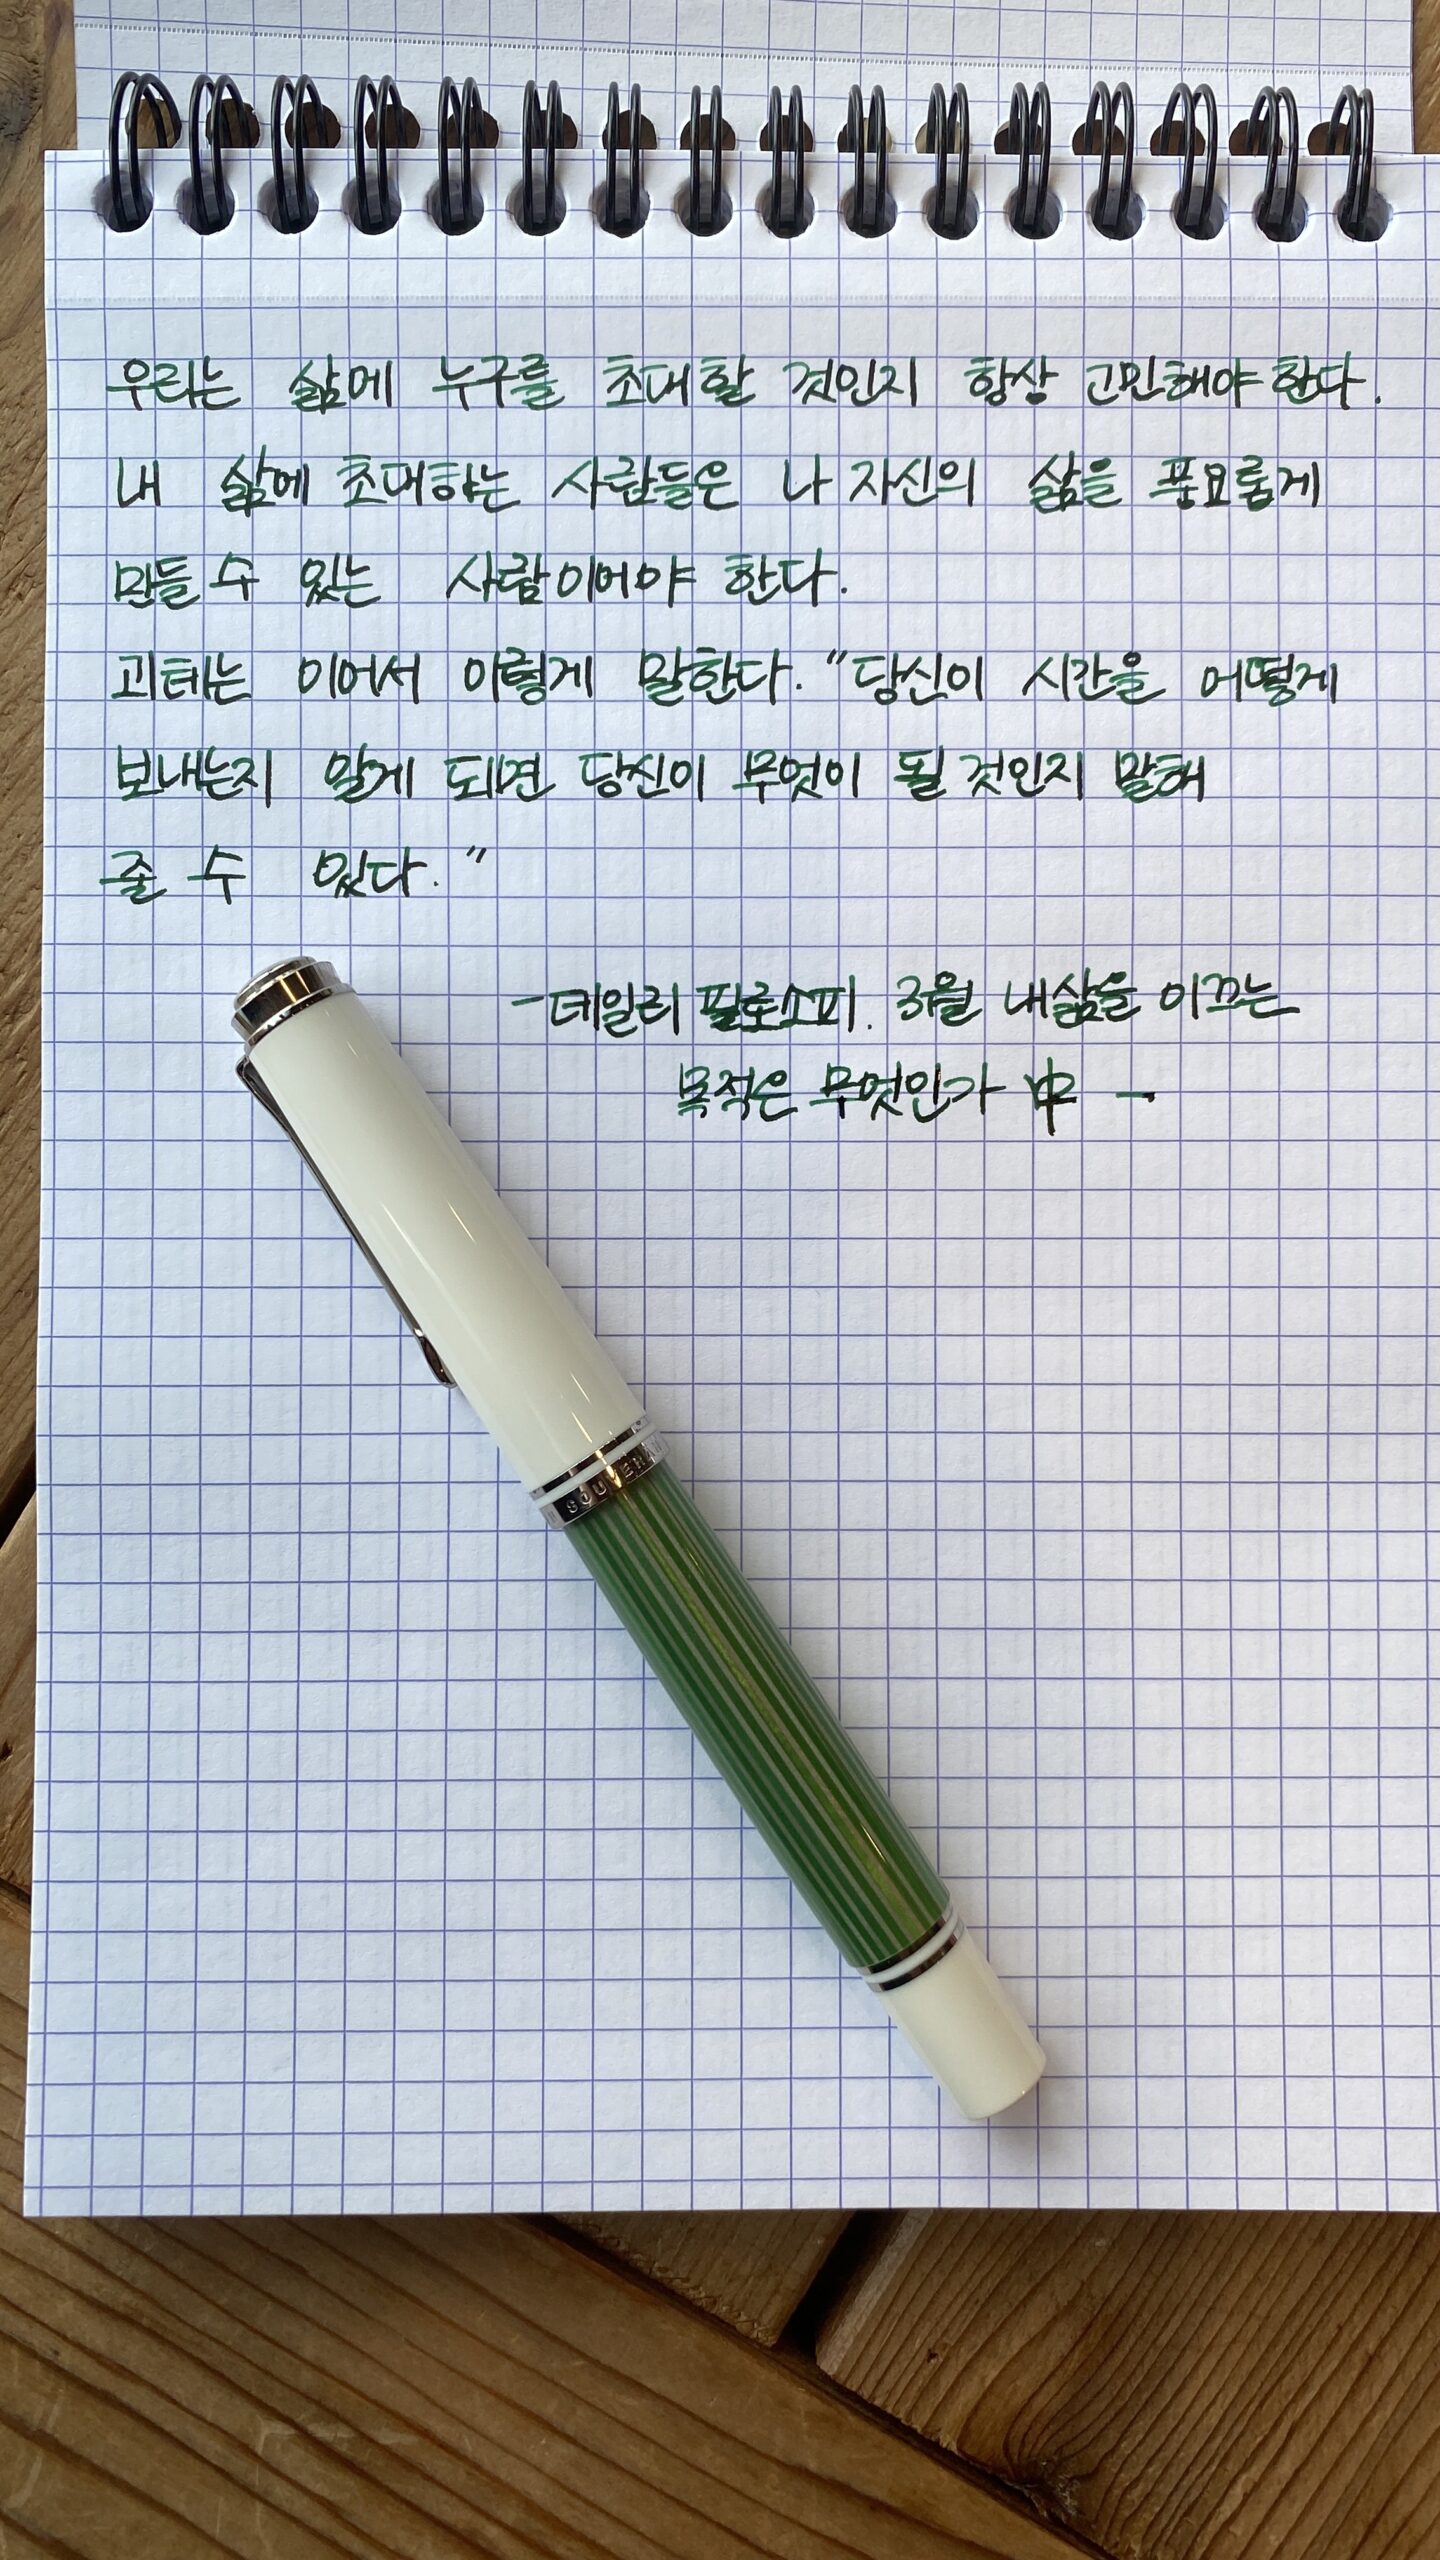 우리는 삶에 누구를 초대할 것인지 항상 고민해야 한다.
내 삶에 초대하는 사람들은 나 자신의 삶을 풍요롭게
만들 수 있는 사람이어야 한다.
괴테는 이어서 이렇게 말한다. "당신이 시간을 어떻게
보내는지 알게 되면 당신이 무엇이 될 것인지 말해
줄 수 있다."
-데일리 필로소피. 3월 내삶을 이끄는
목적은 무엇인가 中 -
SOUVERÄN